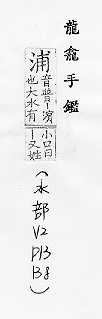 龍龕手鑑
浦
音普濱
也大水有
小口曰
丨又姓
(水部
V2
P13
B8)